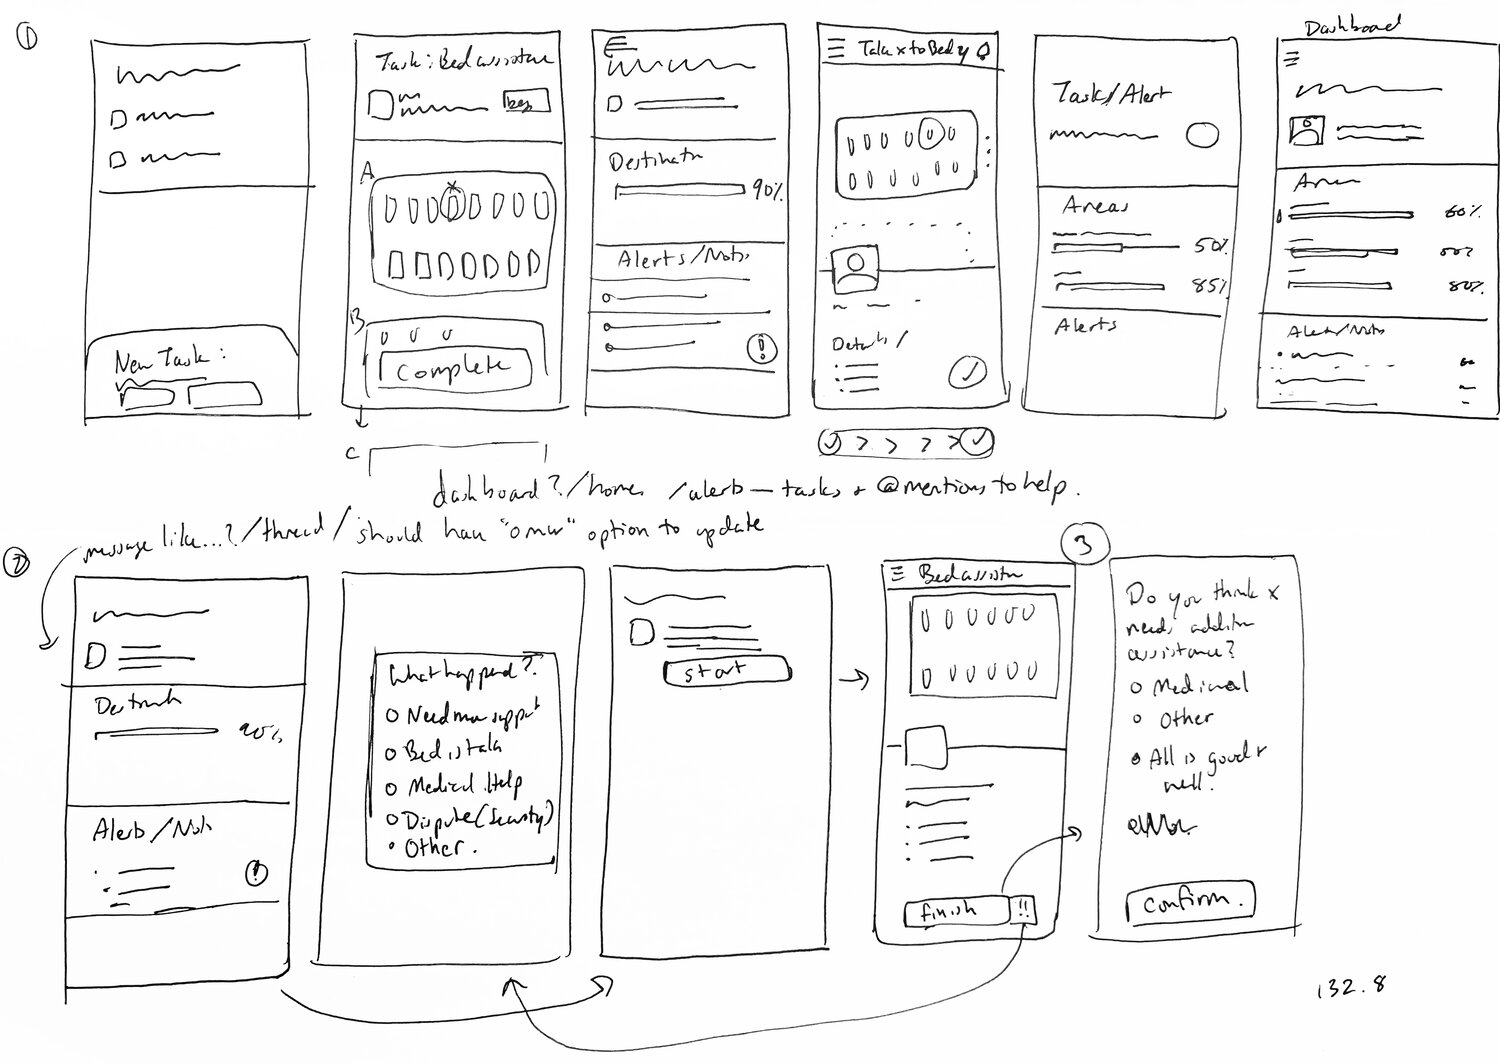 1
New Task:
Task: Bed assistance
A
B
Complete
C
90%
Alerts/Notes
Take x to Bed y
Details/
Task/Alert
Areas
50%
85%
Alerts
Dashboard
Area
60%
80%
Alerts/Notes
dashboard?/home /alerts — tasks + @mentions to help.
message like...?/thread/should have "omw" option to update
2
90%
Alerts/Nots
What happened?
Need more support
Bed is taken
Medical Help
Dispute (Security)
Other.
start
finish
!!
3
Do you think x
needs addition
assistance?
Medical
Other
All is good +
well.
Confirm.
132.8